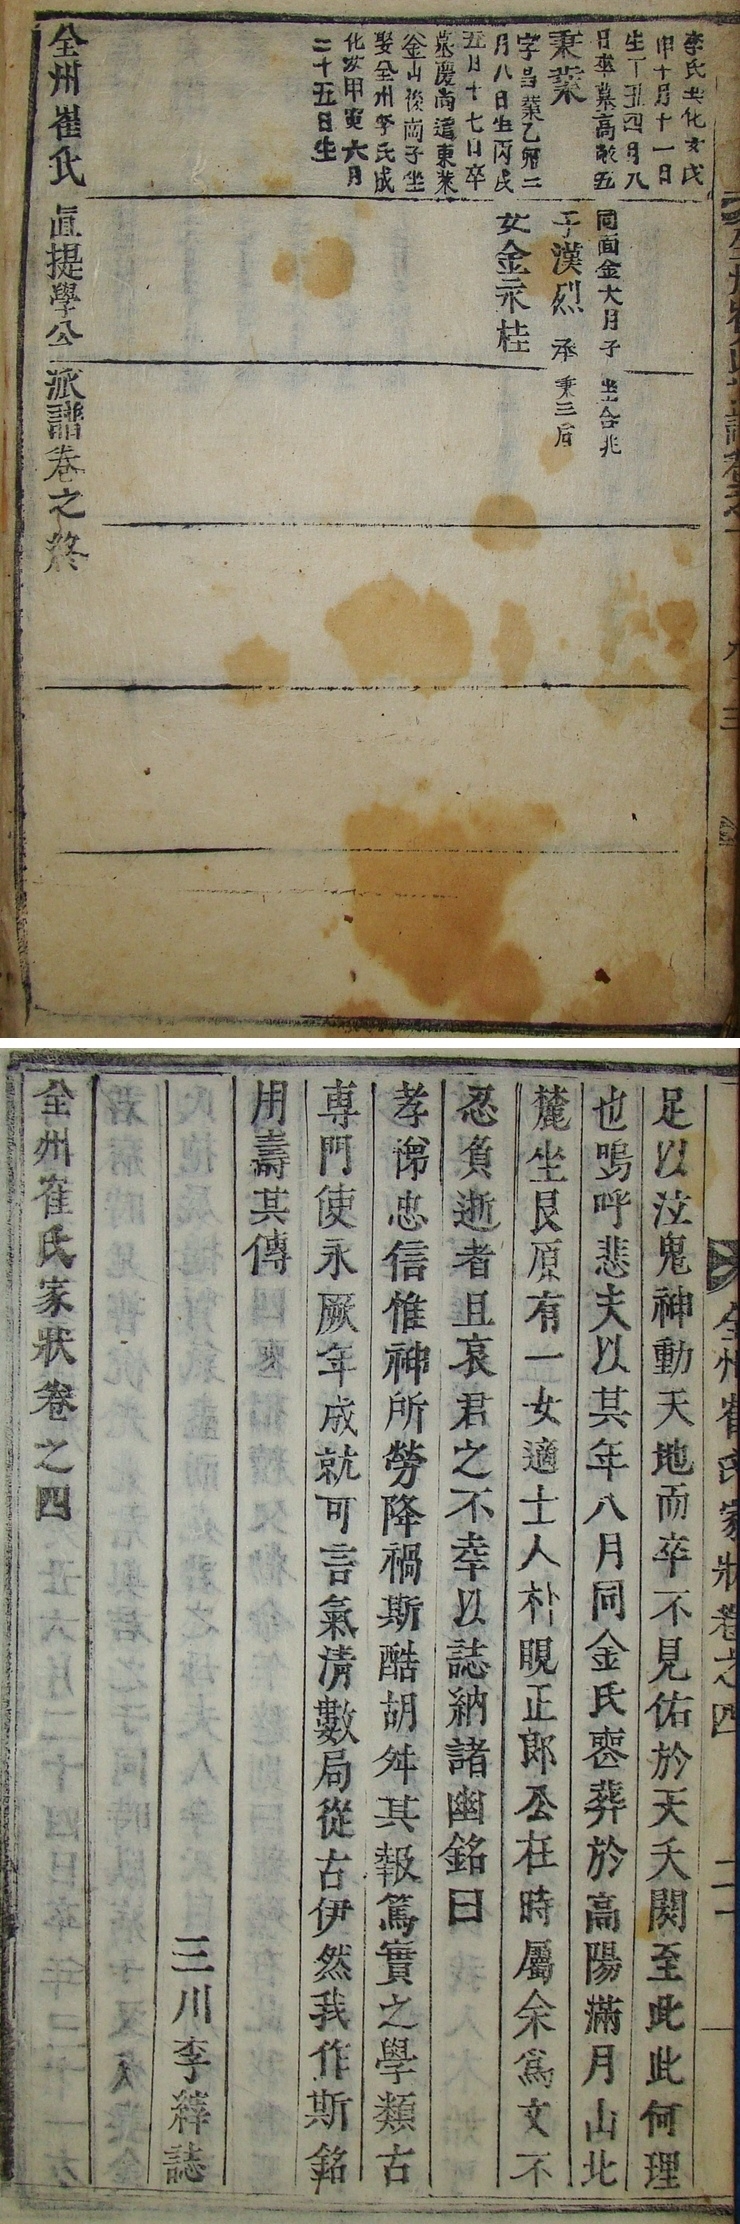 李氏士化女戊
申十月十一日
生丁丑四月八
日卒墓高敞五
同面金大月子
坐合兆
秉業
子漢烈
承
秉三后
字昌業乙卯二
月八日生丙戌
五月十七日卒
墓慶尚道東萊
釜山後崗子坐
娶全州李氏成
化女甲寅六月
二十五日生
女金永桂
全州崔氏直提學公派譜卷之終
足以泣鬼神動天地而卒不見佑於天夭閼至此此何理
也嗚呼悲夫以其年八月同金氏喪葬於高陽滿月山北
麓坐艮原有一女適士人朴晛正郎公在時屬余爲文不
忍負逝者且哀君之不幸以誌納諸幽銘曰
孝悌忠信惟神所勞降禍斯酷胡舛其報篤實之學類古
專門使永厥年成就可言氣清數局從古伊然我作斯銘
用壽其傳
三川李繹誌
全州崔氏家狀卷之四
全州崔氏家狀卷之四